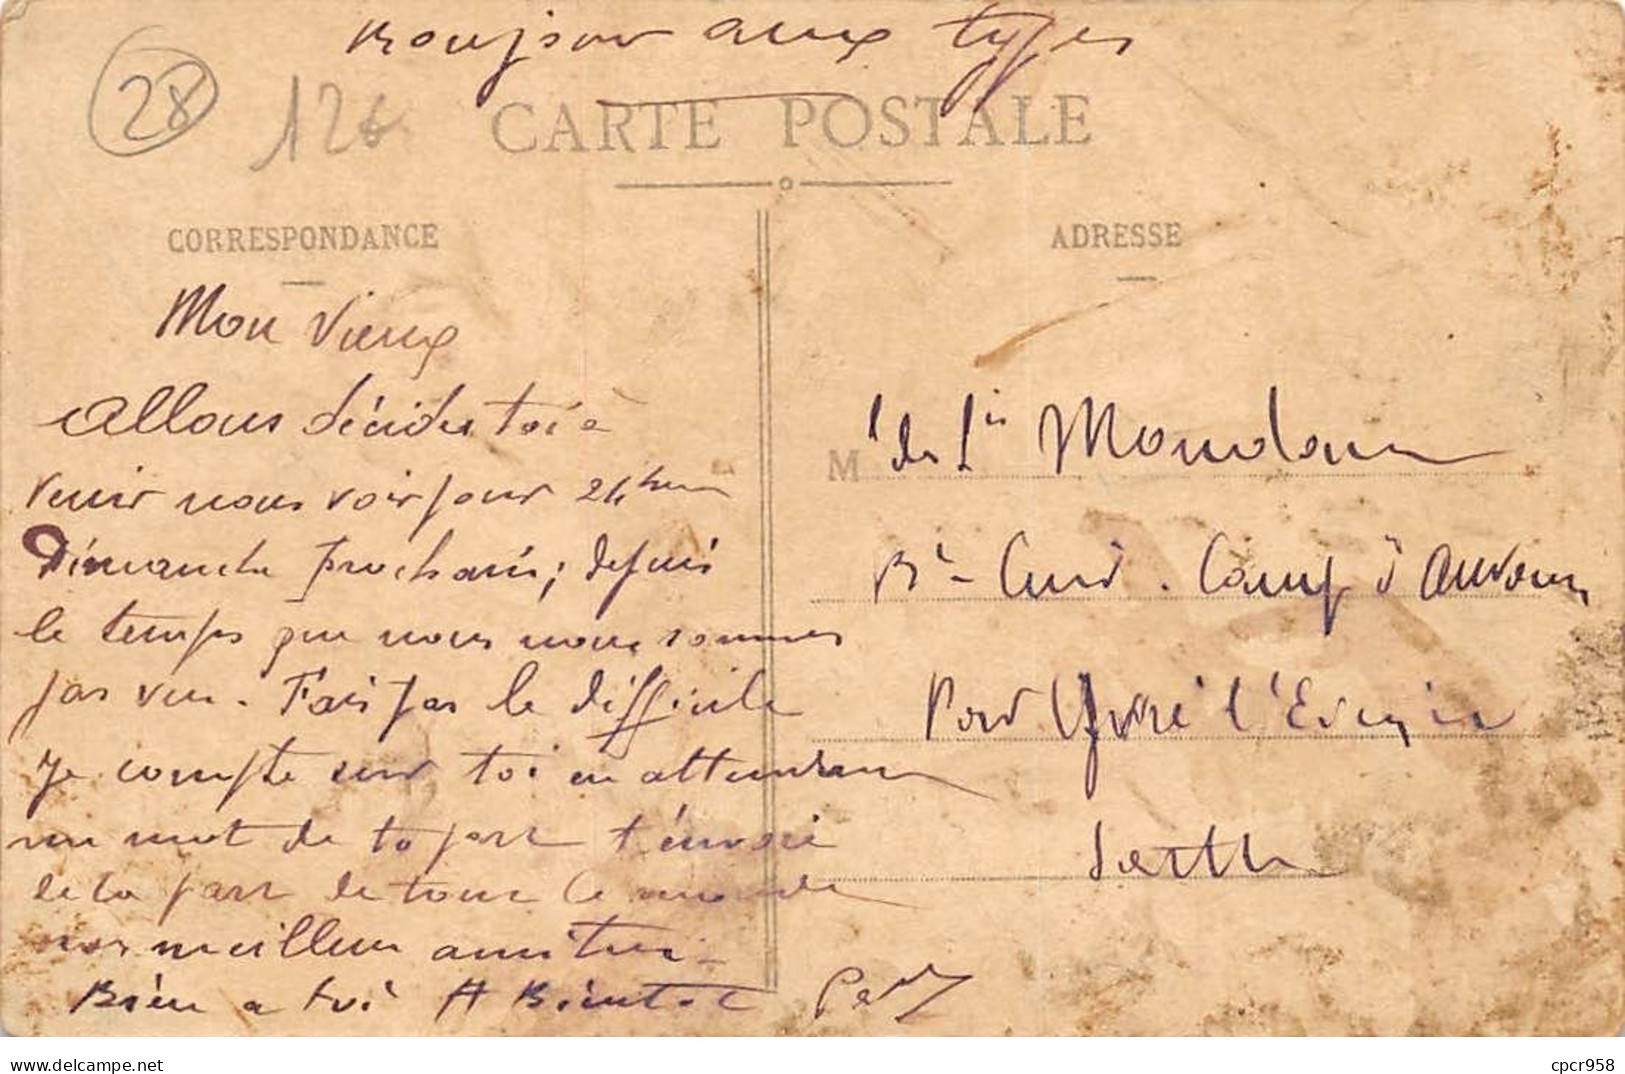 Bonjour aux types
28
126
CARTE POSTALE
CORRESPONDANCE
ADRESSE
Mon Vieux
Allons décides toi à
venir nous voir pour 24 heures
Dimanche prochain ; depuis
le temps que nous nous sommes
pas vu. Fais pas le difficile
Je compte sur toi en attendant
un mot de ta part t'envoie
de la part de tout le monde
nos meilleur amitiés
Bien a toi A Bientot
M
Camp d'Auvours
Par Yvré l'Evèque
Sarthe
www.delcampe.net
cpcr958